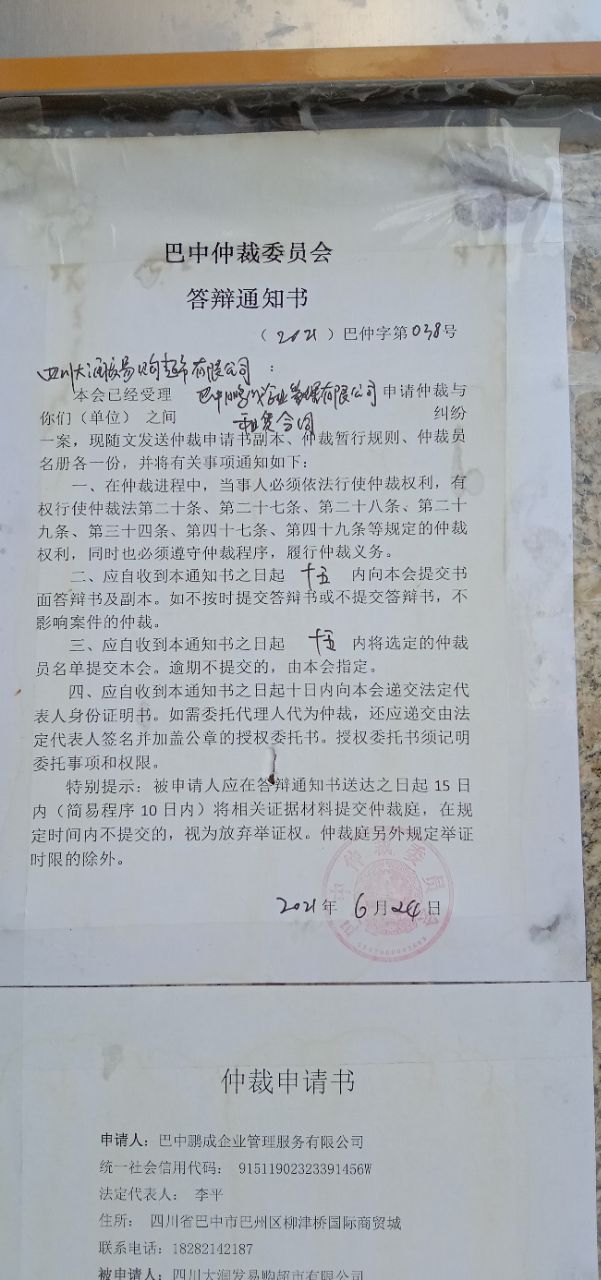 巴中仲裁委员会
答辩通知书
（2021）巴仲字第038号
四川大润发易购超市有限公司：
本会已经受理 巴中鹏成企业管理有限公司 申请仲裁与
你们（单位）之间 租赁合同 纠纷
一案，现随文发送仲裁申请书副本、仲裁暂行规则、仲裁员
名册各一份，并将有关事项通知如下：
一、在仲裁进程中，当事人必须依法行使仲裁权利，有
权行使仲裁法第二十条、第二十七条、第二十八条、第二十
九条、第三十四条、第四十七条、第四十九条等规定的仲裁
权利，同时也必须遵守仲裁程序，履行仲裁义务。
二、应自收到本通知书之日起 十五 内向本会提交书
面答辩书及副本。如不按时提交答辩书或不提交答辩书，不
影响案件的仲裁。
三、应自收到本通知书之日起 十五 内将选定的仲裁
员名单提交本会。逾期不提交的，由本会指定。
四、应自收到本通知书之日起十日内向本会递交法定代
表人身份证明书。如需委托代理人代为仲裁，还应递交由法
定代表人签名并加盖公章的授权委托书。授权委托书须记明
委托事项和权限。
特别提示：被申请人应在答辩通知书送达之日起 15 日
内（简易程序 10 日内）将相关证据材料提交仲裁庭，在规
定时间内不提交的，视为放弃举证权。仲裁庭另外规定举证
时限的除外。
2021年 6月24日
仲裁申请书
申请人：巴中鹏成企业管理服务有限公司
统一社会信用代码：91511902323391456W
法定代表人：李平
住所：四川省巴中市巴州区柳津桥国际商贸城
联系电话：18282142187
被申请人：四川大润发易购超市有限公司